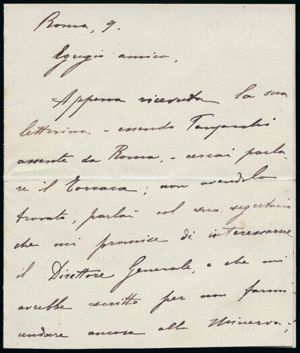 Roma, 9.
Egregio amico,
Appena ricevuta la sua
letterina - essendo
assente da Roma, - cercai parla
re il Torraca; non avendolo
trovato, parlai col suo segretario
che mi promise di interessarne
il Direttore Generale, e che mi
avrebbe scritto per non farmi
andare ancora alla Minerva.